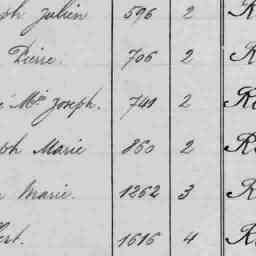 ph Julien 596 2 R
Pierre. 706 2 R
Mie Joseph. 741 2 R
ph Marie 860 2 R
Marie. 1262 3 R
ert. 1616 4 R